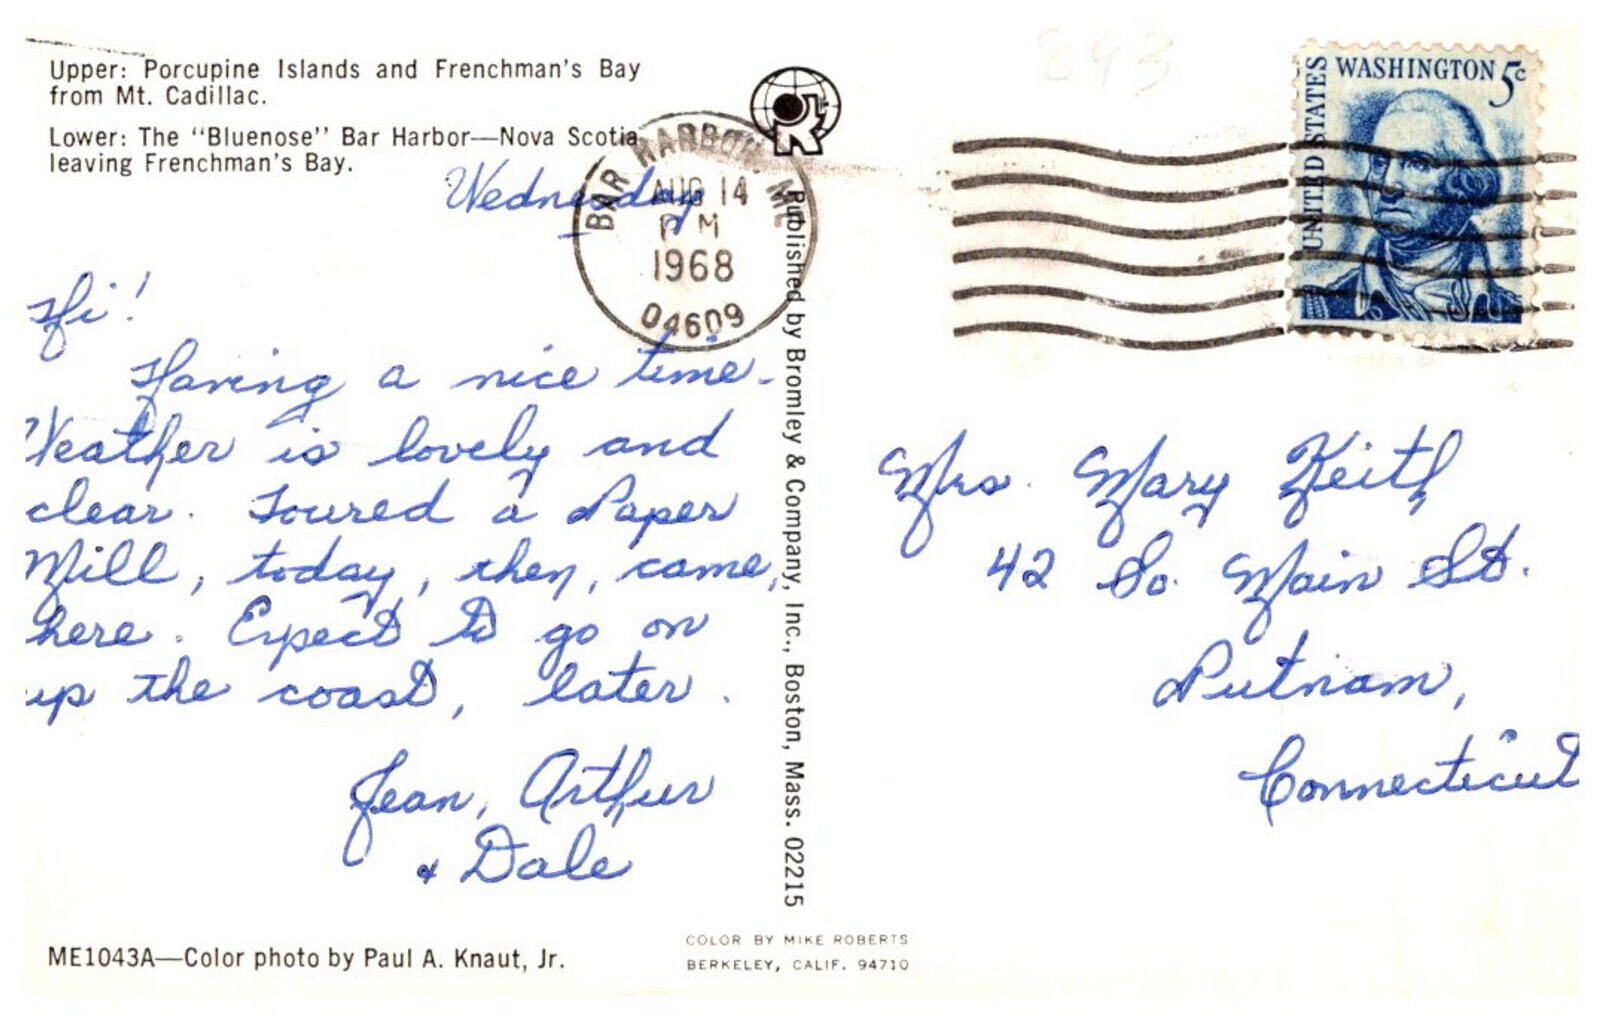 Upper: Porcupine Islands and Frenchman's Bay
from Mt. Cadillac.
Lower: The "Bluenose" Bar Harbor—Nova Scotia
leaving Frenchman's Bay.
Wednesday
BAR HARBOR ME
AUG 14
PM
1968
04609
893
UNITED STATES
WASHINGTON 5c
Hi!
Having a nice time.
Weather is lovely and
clear. Toured a Paper
Mill, today, then, came,
here. Expect to go on
up the coast, later.
Jean, Arthur
& Dale
Published by Bromley & Company, Inc., Boston, Mass. 02215
Mrs. Mary Keith
42 So. Main St.
Putnam,
Connecticut
ME1043A—Color photo by Paul A. Knaut, Jr.
COLOR BY MIKE ROBERTS
BERKELEY, CALIF. 94710